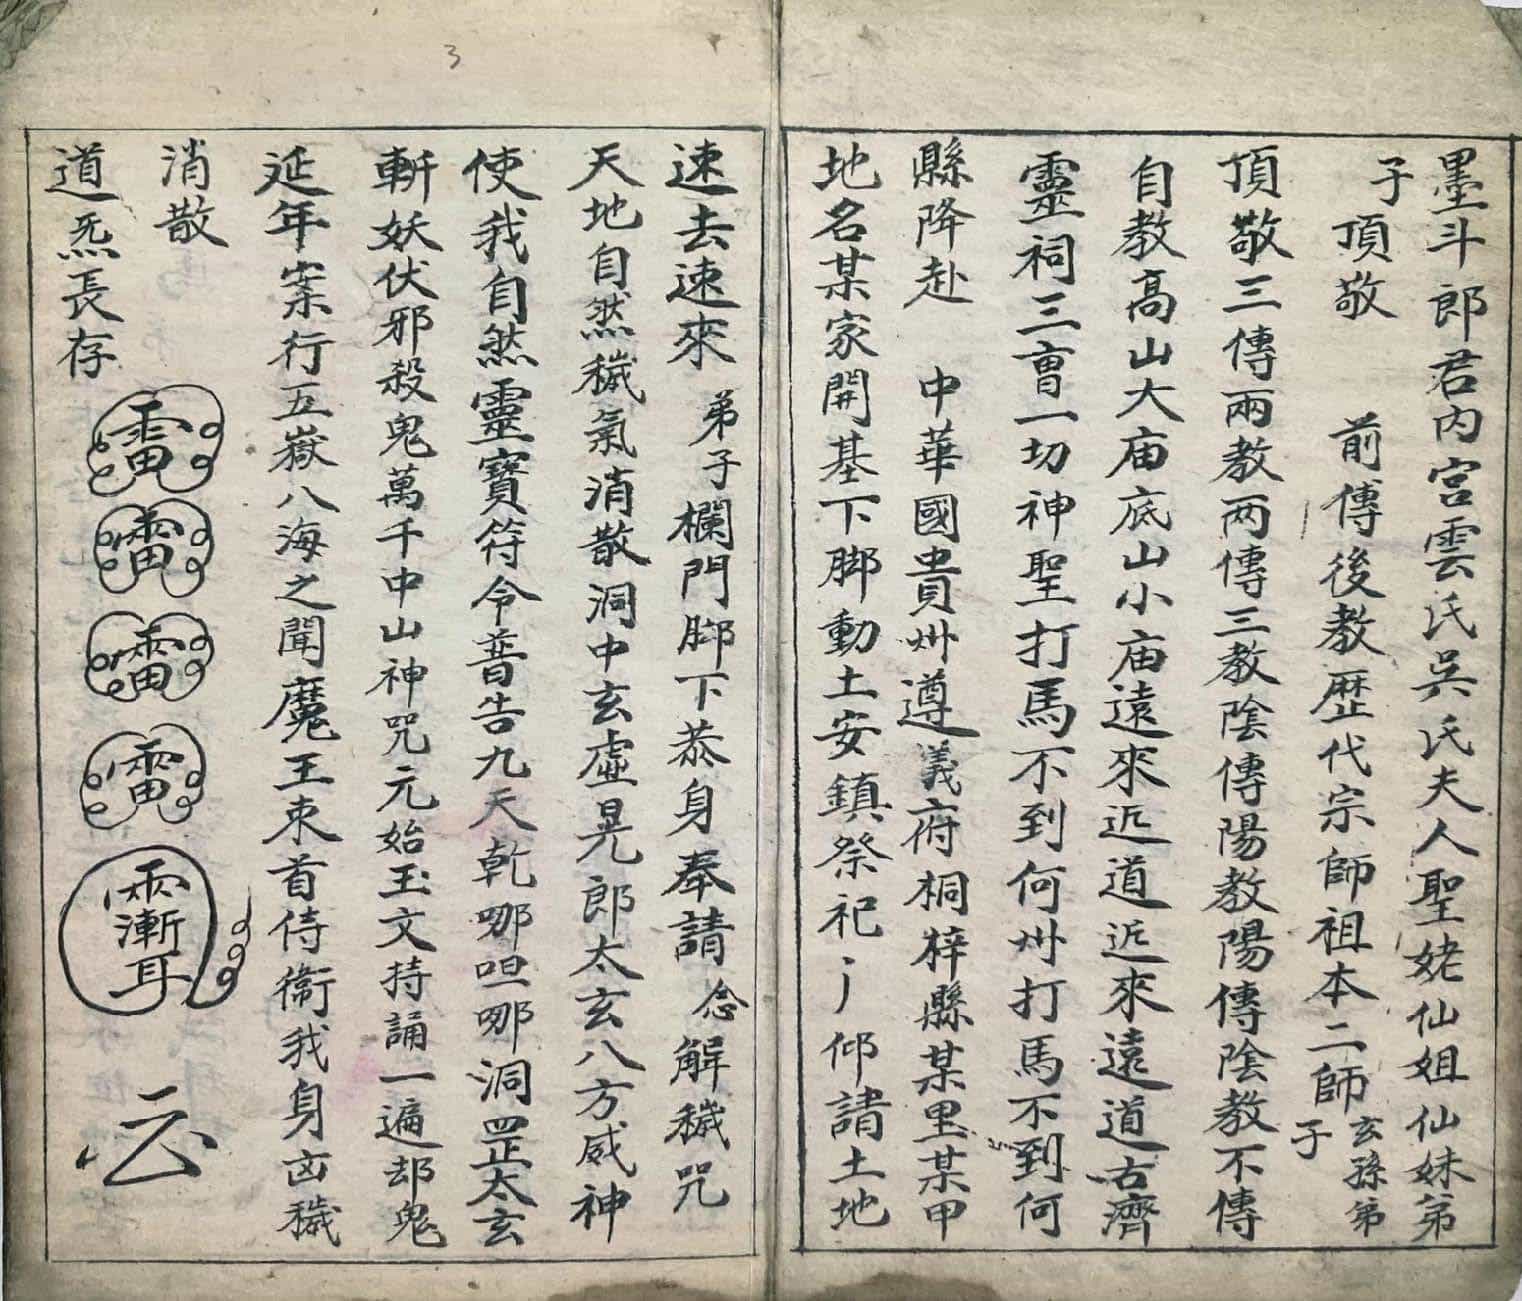 墨斗郎君内宮雲氏吳氏夫人聖姥仙姐仙妹弟
子頂敬 前傳後教歷代宗師祖本二師玄孫弟子
頂敬三傳兩教两傳三教陰傳陽教陽傳陰教不傳
自教高山大庙底山小庙遠來近道近來遠道古濟
靈祠三曹一切神聖打馬不到何州打馬不到何
縣降赴 中華國貴州遵義府桐梓縣某里某甲
地名某家開基下脚動土安鎮祭祀 仰請土地
速去速來 弟子欄門脚下恭身奉請 念解穢咒
天地自然穢氣消散洞中玄虛晃郎太玄八方威神
使我自然靈寶符令普告九天乾哪呾哪洞罡太玄
斬妖伏邪殺鬼萬千中山神咒元始玉文持誦一遍却鬼
延年案行五嶽八海之聞魔王束首侍衛我身凶穢
消散
道炁長存
3